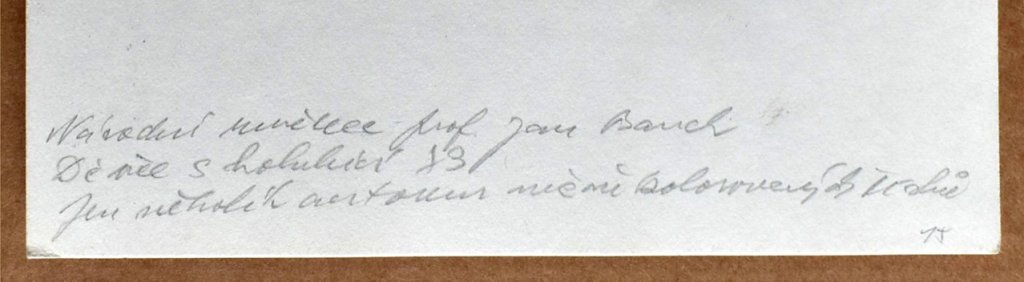 Národní umělec prof Jan Bauch
Děvče s holubicí 83
Jen několik autorem ručně kolorovaných tisků